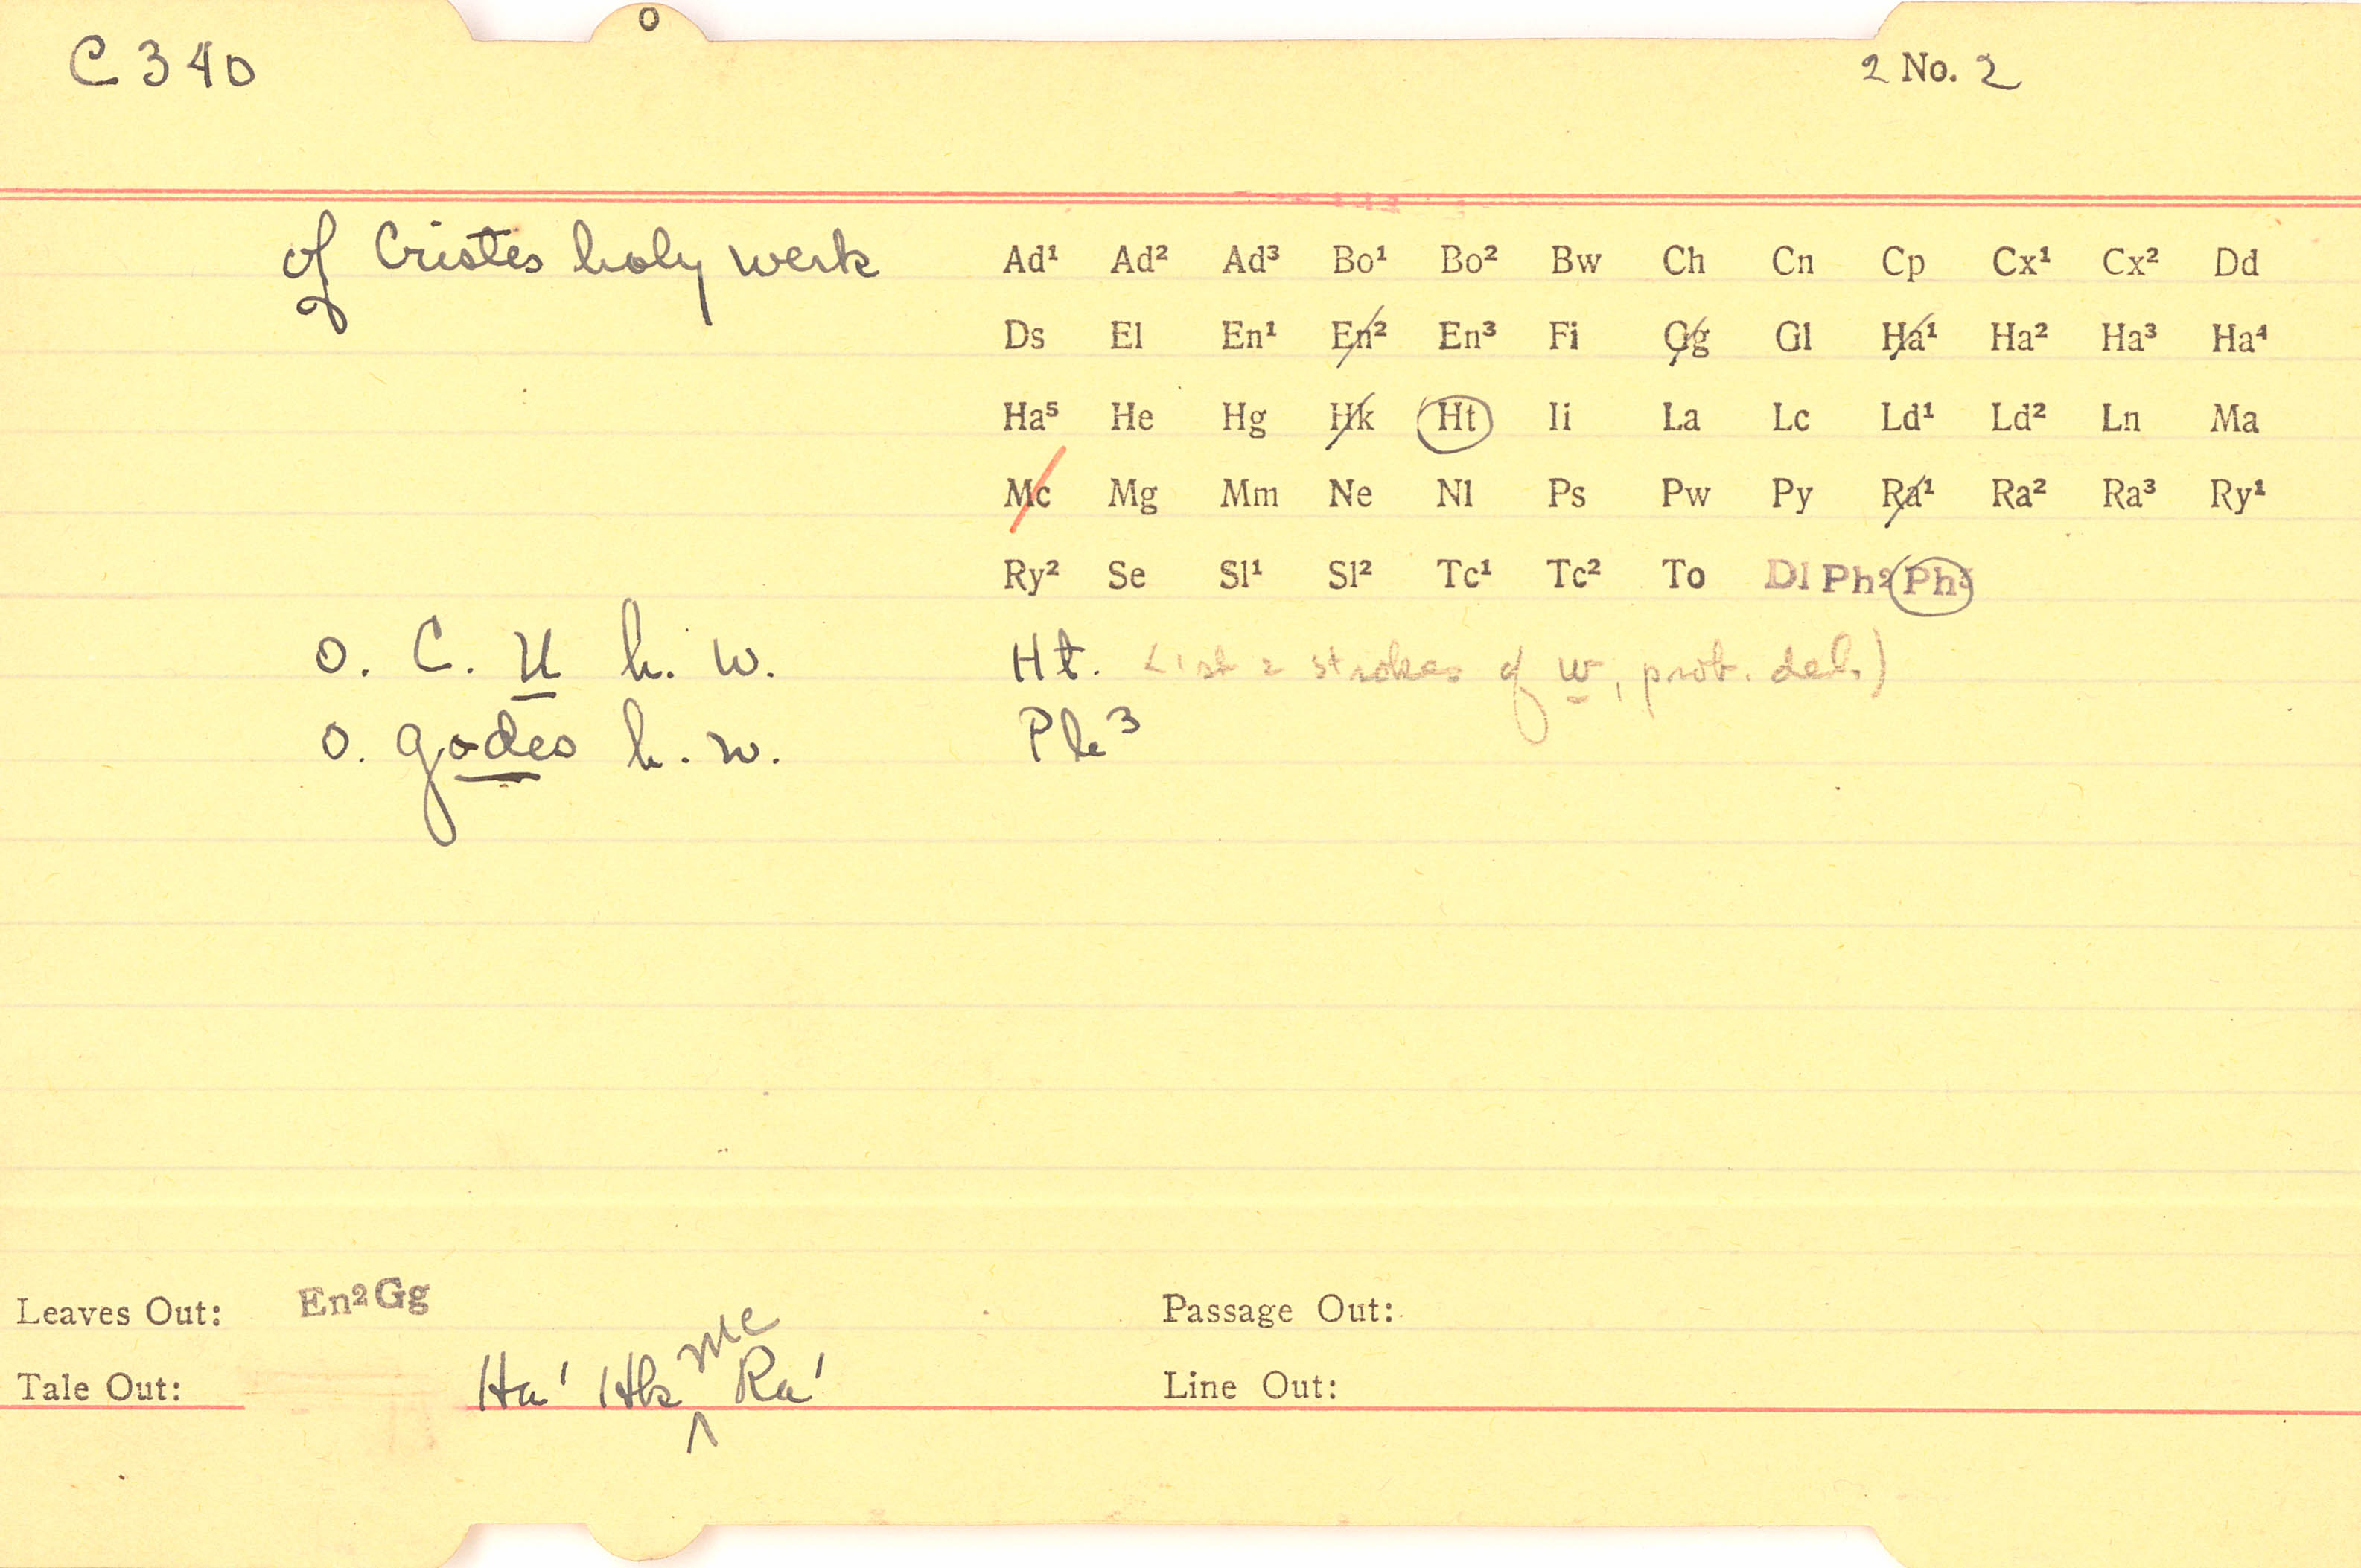 o
C 340
2 No. 2
of Cristes holy werk
Ad¹ Ad² Ad³ Bo¹ Bo² Bw Ch Cn Cp Cx¹ Cx² Dd
Ds El En¹ En² En³ Fi Gg Gl Ha¹ Ha² Ha³ Ha⁴
Ha⁵ He Hg Hk Ht Ii La Lc Ld¹ Ld² Ln Ma
Mc Mg Mm Ne Nl Ps Pw Py Ra¹ Ra² Ra³ Ry¹
Ry² Se Sl¹ Sl² Tc¹ Tc² To Dl Ph² Ph³
o. C. u h. w. Ht. (1st 2 strokes of w, prob. del.)
o. godes h. w. Ph³
Leaves Out: En² Gg
Passage Out:
Tale Out: Ha¹ Hk Mc Ra¹
Line Out: